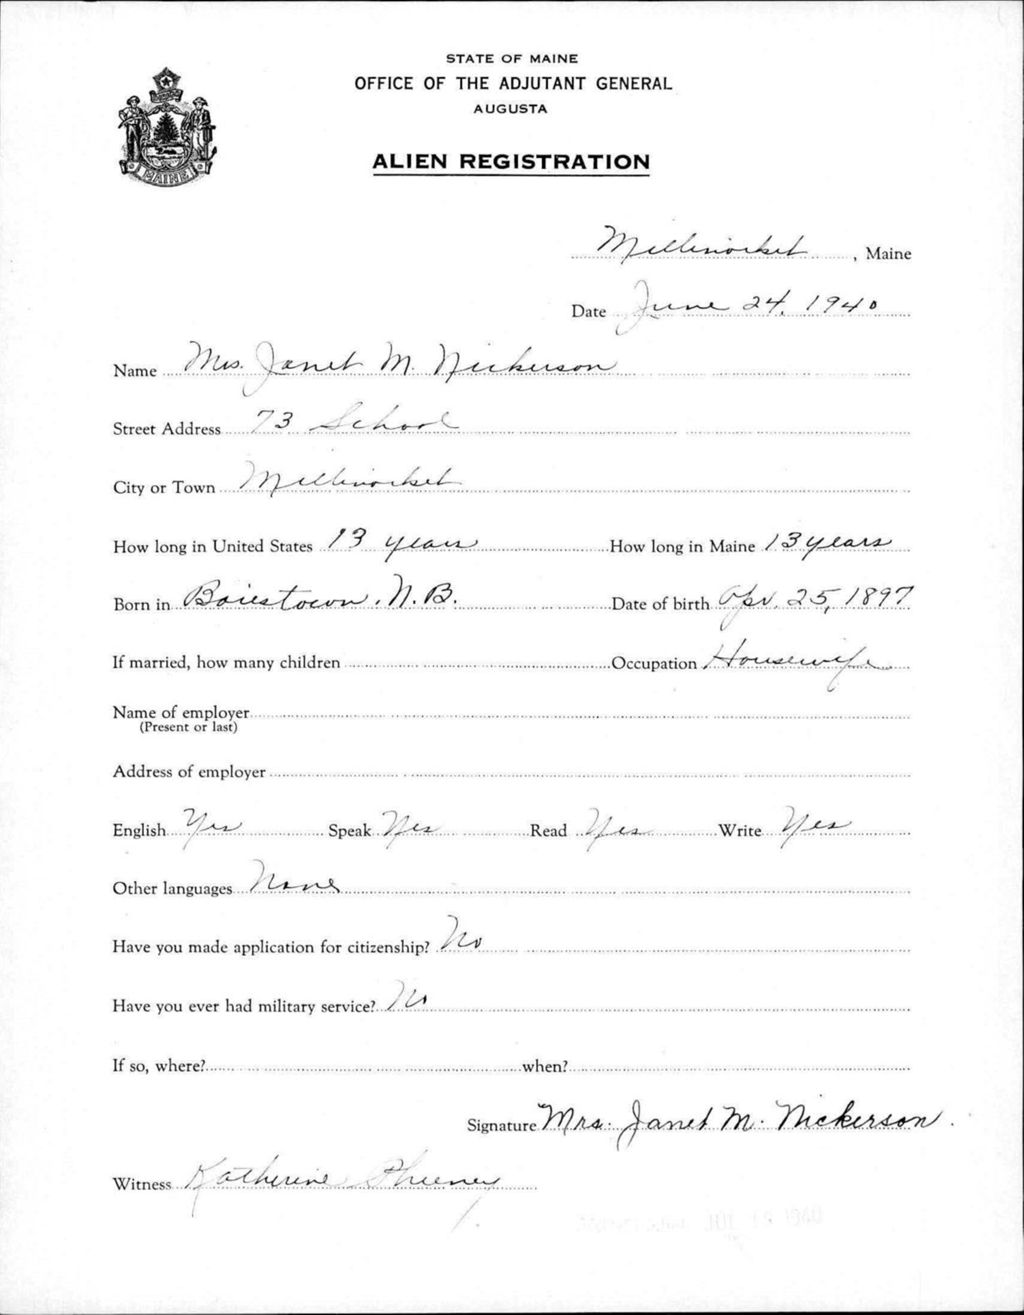 STATE OF MAINE
OFFICE OF THE ADJUTANT GENERAL
AUGUSTA
ALIEN REGISTRATION
MAINE
Millinocket, Maine
Date June 24, 1940
Name Mrs. Janet M. Nickerson
Street Address 73 School
City or Town Millinocket
How long in United States 13 years How long in Maine 13 years
Born in Boiestown, N.B. Date of birth Apr. 25, 1897
If married, how many children Occupation Housewife
Name of employer
(Present or last)
Address of employer
English Yes Speak Yes Read Yes Write Yes
Other languages None
Have you made application for citizenship? No
Have you ever had military service? No
If so, where? when?
Signature Mrs. Janet M. Nickerson.
Witness Katherine Sheeney
JUL 1940